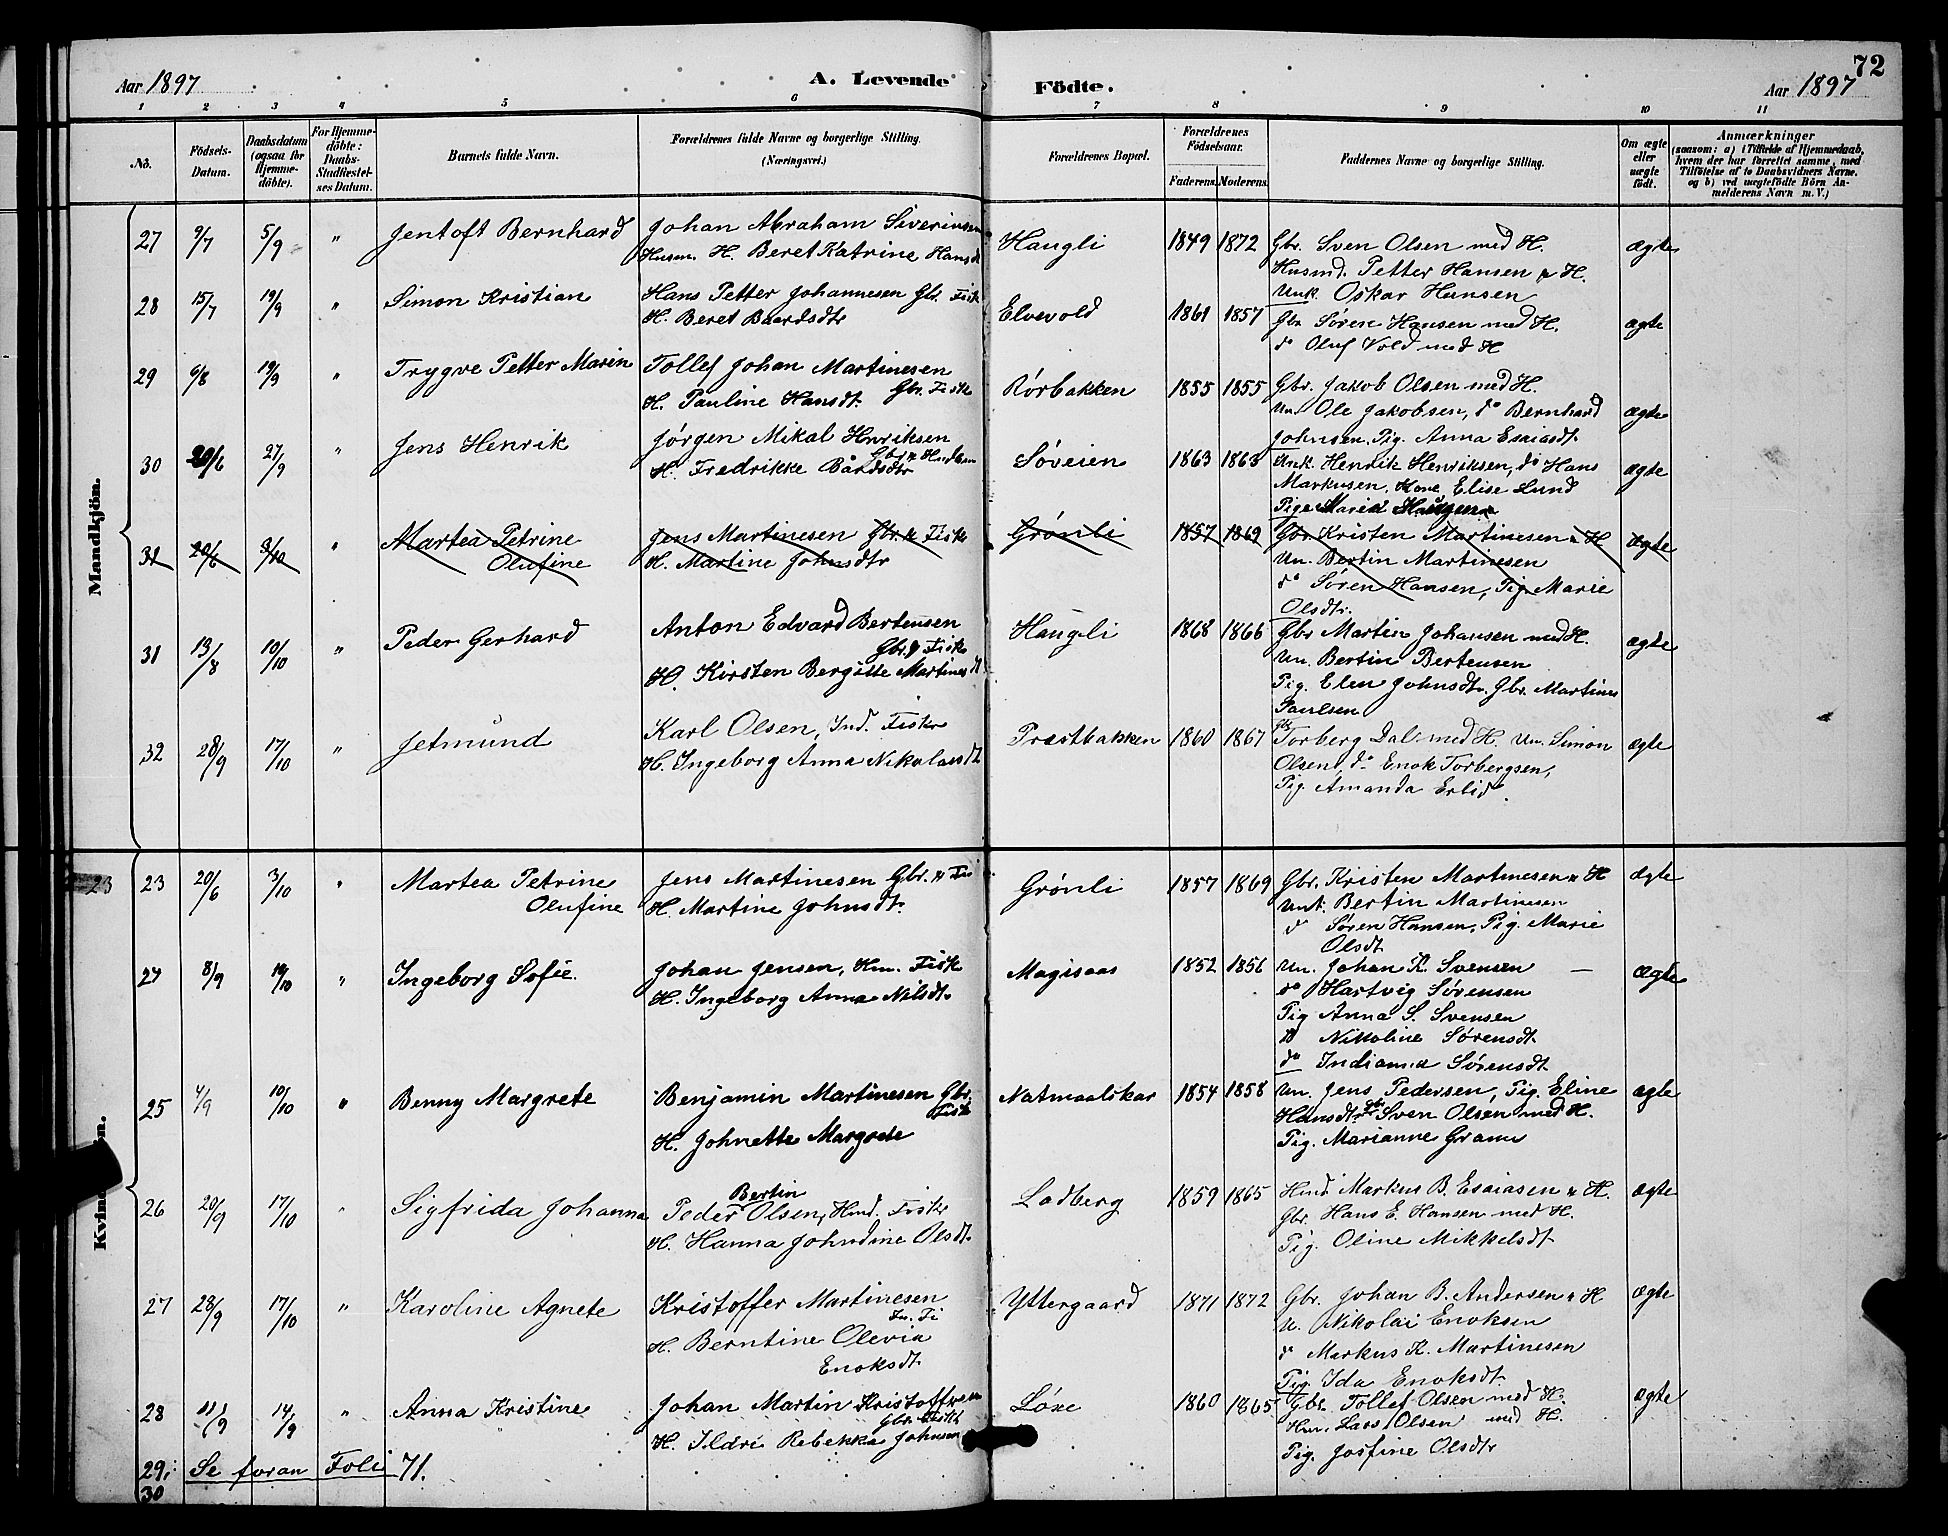 72
Aar 1897 A. Levende Födte. Aar 1897
1 2 3 4 5 6 7 8 9 10 11
No. Födsels-Datum. Daabsdatum (ogsaa for Hjemme-döbte). For Hjemme-döbte: Daabs-Stadfæstel-ses Datum. Barnets fulde Navn. Forældrenes fulde Navne og borgerlige Stilling. (Næringsvei.) Forældrenes Bopæl. Forældrenes Födselsaar. Faderens. Moderens. Faddernes Navne og borgerlige Stilling. Om ægte eller uægte födt. Anmærkninger (saasom: a) i Tilfælde af Hjemmedaab, hvem der har forrettet samme, med Tilföielse af to Daabsvidners Navne, og b) ved uægtefödte Börn An-melderens Navn m. V.)
Mandkjön.
27 9/7 5/9 " Jentoft Bernhard Johan Abraham Siverinsen Haugli 1849 1872 Gbr. Sven Olsen med H. ægte
Husm. H. Beret Katrine Hansd Husmd. Petter Hansen & H.
Unk. Oskar Hansen
28 15/7 19/9 " Simon Kristian Hans Petter Johannesen Gbr. Fisk Elvevold 1861 1857 Gbr Søren Hansen med H. ægte
H. Beret Baardsdtr do Oluf Vold med H
29 6/8 19/9 " Trygve Petter Marin Tollef Johan Martinesen Rörbakken 1855 1855 Gbr. Jakob Olsen med H. ægte
Gbr. Fisk
H. Pauline Hansdt. Un. Ole Jakobsen, do Bernhard
Johnsen. Pig. Anna Esaiasdt.
30 20/6 27/9 " Jens Henrik Jørgen Mikal Henriksen Söveien 1863 1863 Unk. Henrik Henriksen, do Hans ægte
H. Fredrikke Bårdsdtr Markusen, Kone Elise Lund
Pige Maria Haugen
31 20/6 3/10 " Martea Petrine Jens Martinesen Gbr. & Fisk Grönli 1857 1869 Gbr Kristen Martinesen & H ægte
Olufine H. Martine Johnsdtr Un. Bertin Martinesen
do Søren Hansen, Pig Marie
Olsdtr.
31 13/8 10/10 " Peder Gerhard Anton Edvard Bertensen Haugli 1868 1866 Gbr Martin Johansen med H. ægte
Gbr. & Fisk Un. Bertin Bertensen
H. Kirsten Bergitte Martinesdt Pig. Elen Johnsdt. Gbr. Martines
Paulsen
32 28/9 17/10 " Jetmund Karl Olsen, Ind. Fisker Præstbakken 1860 1867 Gbr Torberg Dal med H. Un. Simon ægte
H. Ingeborg Anna Nikolaisdt Olsen, do Enok Torbergsen,
Pig. Amanda
Kvindkjön.
23 23 20/6 3/10 " Martea Petrine Jens Martinesen Gbr. & Fi Grönli 1857 1869 Gbr. Kristen Martinesen & H ægte
Olufine H. Martine Johnsdt. Unk. Bertin Martinesen
do Søren Hansen, Pig. Marie
Olsdt
24 8/9 19/10 " Ingeborg Sofie. Johan Jensen, Hm. Fisk Magisaas 1852 1856 Un. Johan K. Svensen — ægte
H. Ingeborg Anna Nilsdt. do Hartvig Sørensen
Pig Anna S. Svensen
do Nikoline Sørensdt.
do Indianna Sørensdt
25 4/9 10/10 " Benny Margrete Benjamin Martinesen Gbr. Natmaalskar 1854 1858 Un. Jens Pedersen, Pig. Eline ægte
Fisk Hansdtr Gbr Sven Olsen med H.
H. Johnette Margrete Pig. Marianne Gram
26 20/9 17/10 " Sigfrida Johanna Peder Bertin Olsen, Hmd. Fiskr Ladberg 1859 1865 Hmd. Markus B. Esaiasen & H. ægte
H. Hanna Johndine Olsdt. Gbr. Hans E. Hansen med H.
Pig. Oline Mikkelsdt
27 28/9 17/10 " Karoline Agnete Kristoffer Martinesen Yttergaard 1871 1872 Gbr. Johan B. Andersen & H ægte
In. Fi U. Nikolai Enoksen
H. Berntine Olevia do Markus K. Martinesen
Enoksdt. Pig. Ida Enoksdt.
28 11/9 14/9 " Anna Kristine Johan Martin Kristoffersen Löxe 1860 1865 Gbr. Tollef Olsen med H. ægte
Gbr. Fisk Hm. Lars Olsen med H.
H. Ildri Rebekka Johnsen Pig. Josfine Olsdtr
29. Se foran Folie 71.
30